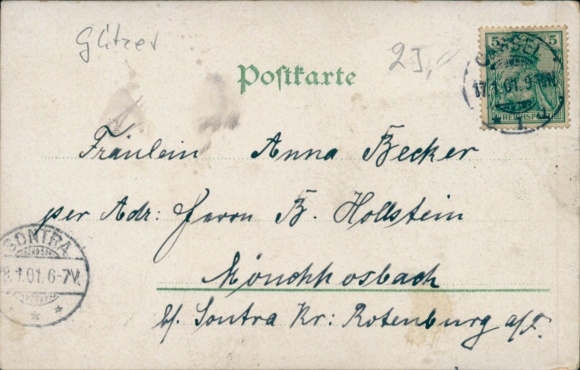 Glitzer
25,-
Postkarte
5 5
REICHSPOST
CASSEL
17.1.01.
1
Fräulein Anna Becker
per Adr: Herrn B. Hollstein
Mönchhosbach
b/ Sontra Kr: Rotenburg a/F.
SONTRA
8.1.01.6-7V.